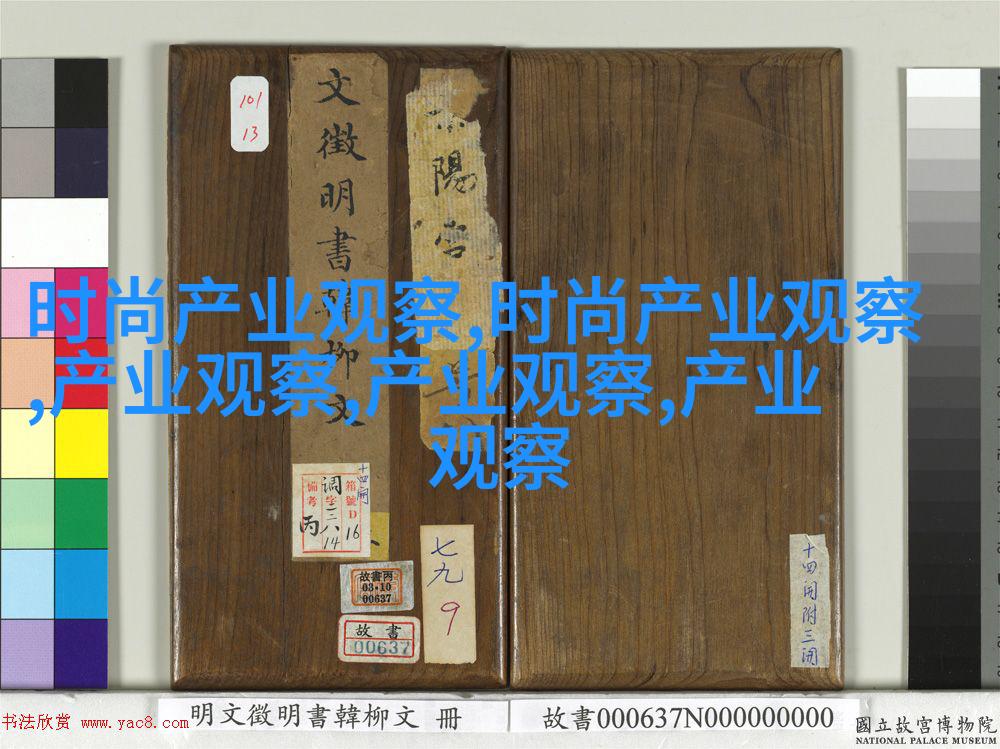 101
13
文徵明書韓柳文
陽宮
时尚产业观察,时尚产业观察
,产业观察,产业观察,产业
观察
十四開
箱號D16
調字三八14
備考丙
故書丙
03·10
00637
故書
00637
七九
9
十四開附三開
明文徵明書韓柳文 冊
故書000637N000000000
书法欣赏 www.yac8.com
國立故宮博物院
NATIONAL PALACE MUSEUM